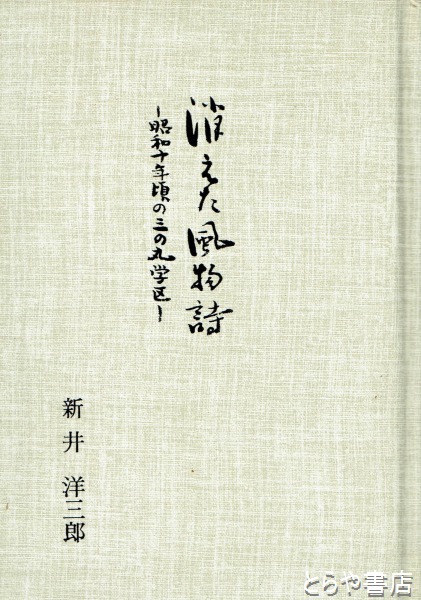 消えた風物詩
-昭和十年頃の三の丸学区-
新井洋三郎
とらや書店